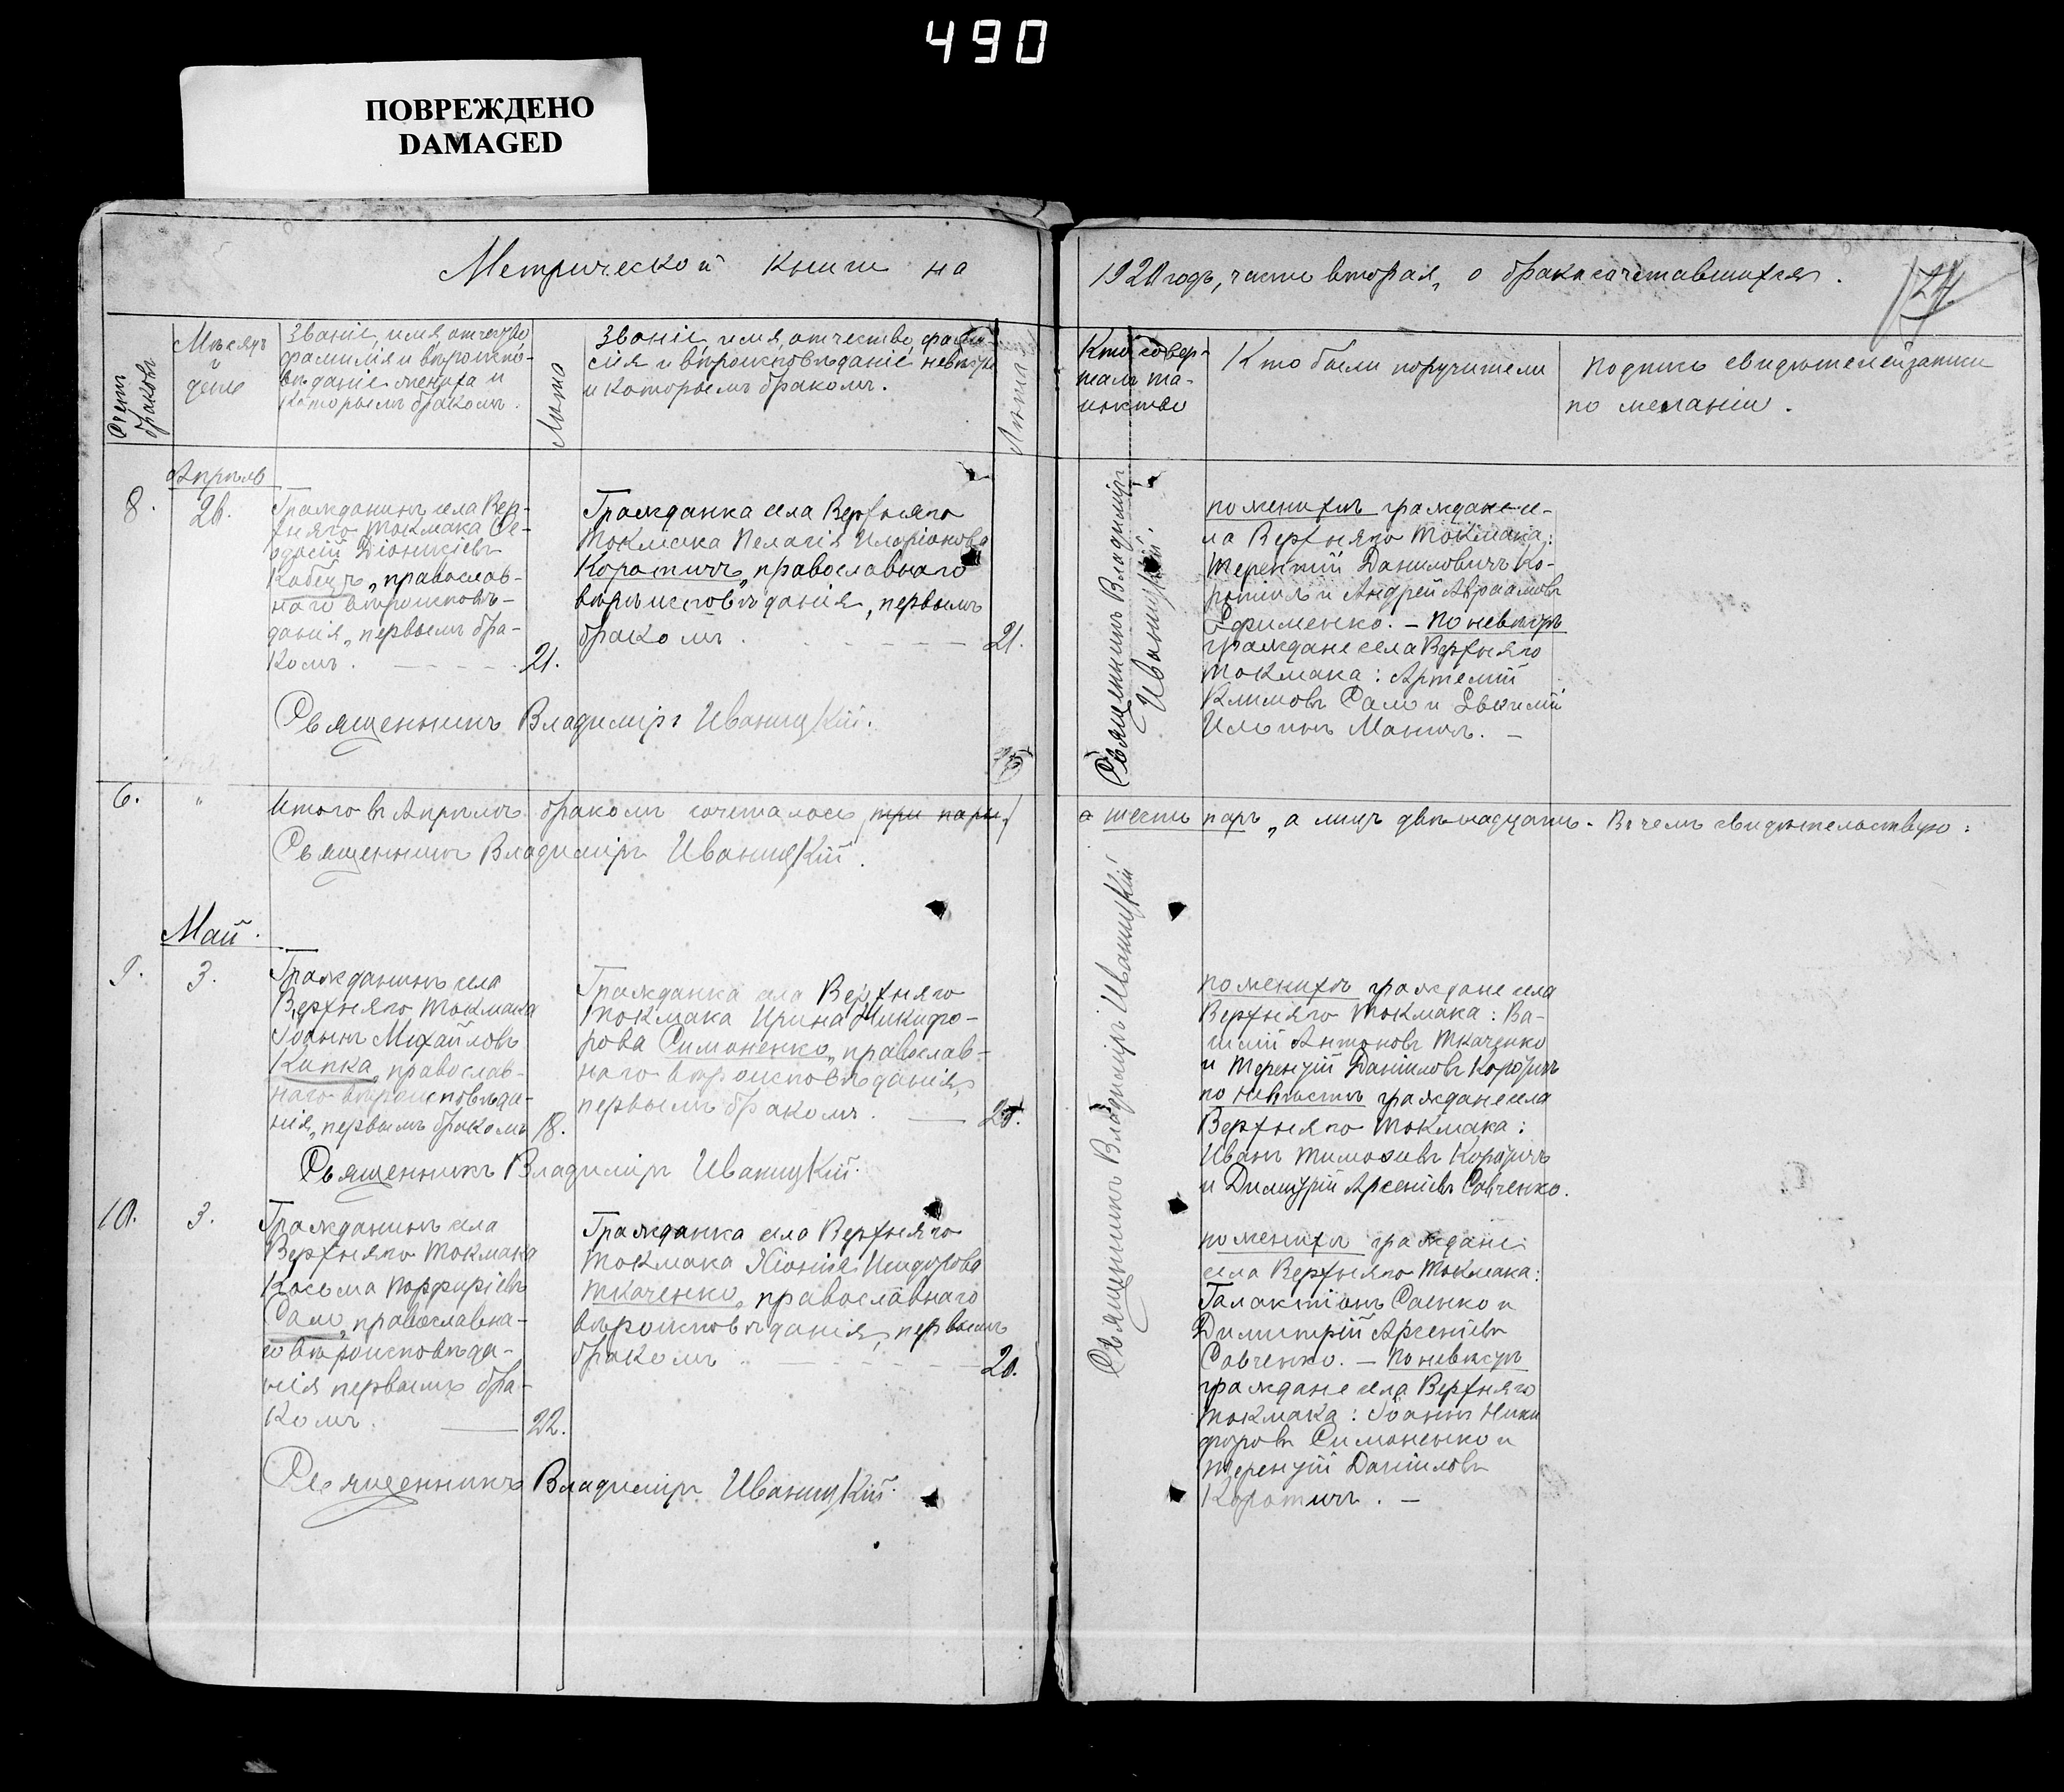 490
ПОВРЕЖДЕНО
DAMAGED
Метрической книги на
1920 годъ, часть вторая, о бракосочетавшихся.
124
Счетъ браковъ
Мѣсяцъ
и
день
Званіе, имя, отчество
фамилія и вѣроиспо-
вѣданіе жениха и
которымъ бракомъ.
Лѣта
Званіе, имя, отчество, фами-
лія и вѣроисповѣданіе невѣсты
и которымъ бракомъ.
Лѣта
Кто совер-
шалъ та-
инство
Кто были поручители
Подпись свидѣтелей записи
по желанію.
Апрѣль
8.
26.
Гражданинъ села Вер-
хняго Токмака Ѳе-
одосій Діонисіевъ
Кобецъ, православ-
наго вѣроисповѣ-
данія, первымъ бра-
комъ.
21.
Гражданка села Верхняго
Токмака Пелагія Иларіонова
Коротичъ, православнаго
вѣроисповѣданія, первымъ
бракомъ.
21.
Священникъ Владиміръ
Иваницкій.
По женихѣ граждане се-
ла Верхняго Токмака:
Терентій Даниловичъ Ко-
ротичъ и Андрей Авраамовъ
Ефименко. — По невѣстѣ
граждане села Верхняго
Токмака: Артемій
Климовъ Сало и Евѳимій
Ильинъ
Священникъ Владиміръ Иваницкій.
6.
"
Итого въ Апрѣлѣ бракомъ сочеталось три пары.
а шесть паръ, а лицъ двѣнадцать. Въ чемъ свидѣтельствую:
Священникъ Владиміръ Иваницкій.
Май.
9.
3.
Гражданинъ села
Верхняго Токмака
Іоаннъ Михайловъ
Кипка, православ-
наго вѣроисповѣда-
нія, первымъ бракомъ
18.
Гражданка села Верхняго
Токмака Ирина Никифо-
рова Симоненко, православ-
наго вѣроисповѣданія,
первымъ бракомъ.
Священникъ Владиміръ Иваницкій
По женихѣ граждане села
Верхняго Токмака: Ва-
силій Антоновъ Ткаченко
и Терентій Даніиловъ Коротичъ
по невѣстѣ граждане села
Верхняго Токмака:
Иванъ Тимоѳеевъ Коротичъ
и Димитрій Арсеніевъ Савченко.
Священникъ Владиміръ Иваницкій.
10.
3.
Гражданинъ села
Верхняго Токмака
Косьма Порфиріевъ
Сало, православна-
го вѣроисповѣда-
нія первымъ бра-
комъ.
22.
Гражданка села Верхняго
Токмака Хіонія Исидорова
Ткаченко, православнаго
вѣроисповѣданія, первымъ
бракомъ.
20.
По женихѣ граждане
села Верхняго Токмака:
Галактіонъ Саенко и
Димитрій Арсеніевъ
Савченко. — По невѣстѣ
граждане села Верхняго
Токмака: Іоаннъ Ники
форовъ Симоненко и
Терентій Даніиловъ
Коротичъ. —
Священникъ Владиміръ Иваницкій.